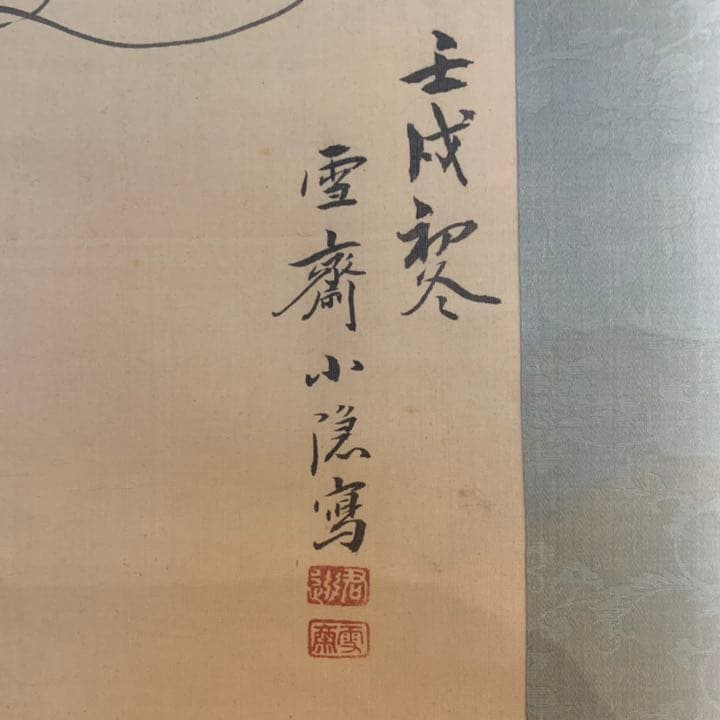 壬戌初冬
雪齋小隱寫
雪齋